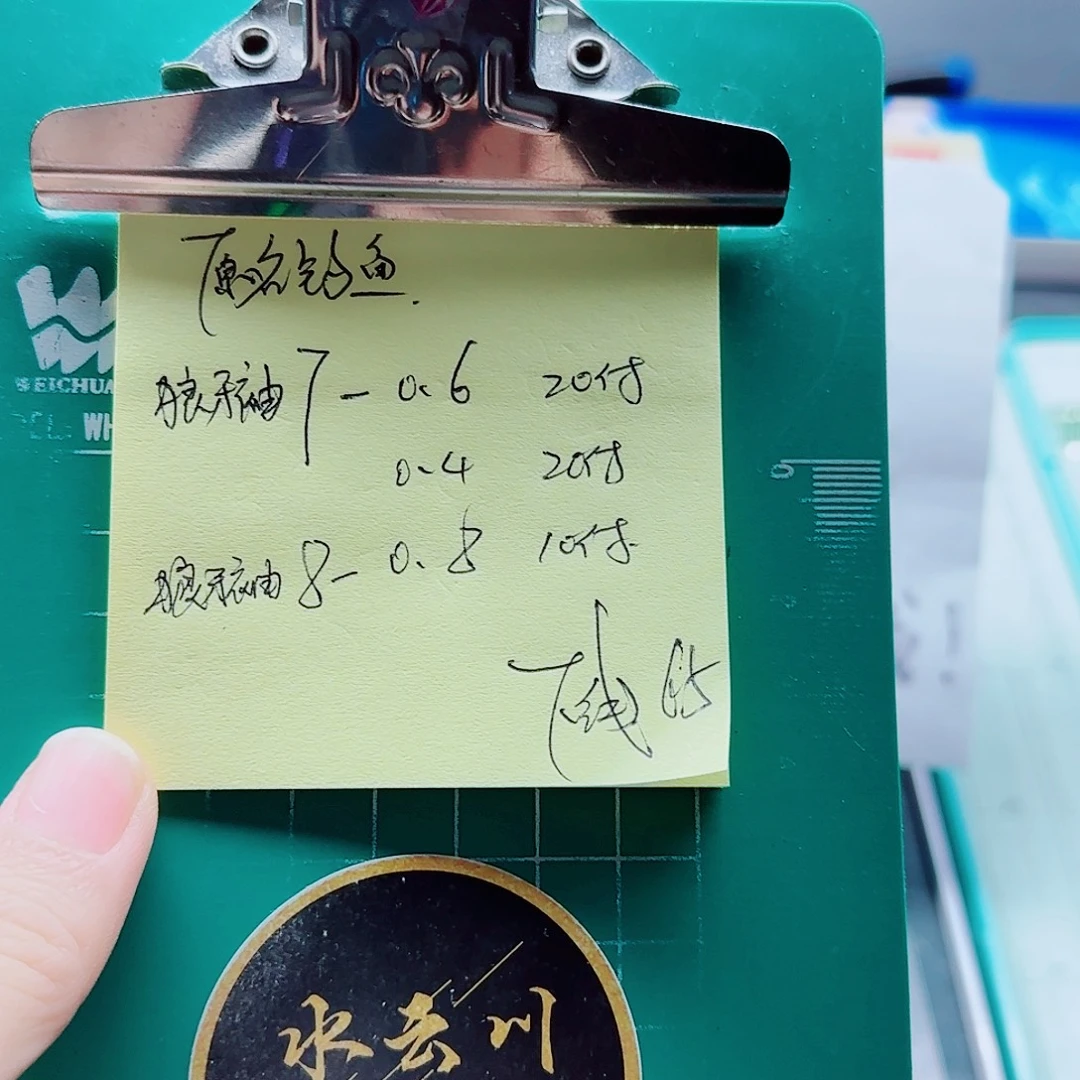 钓鱼.
狼牙袖 7 - 0.6 20付
0.4 20付
狼牙袖 8 - 0.8 10付.
下线
WEICHUA
WH
0
水云川